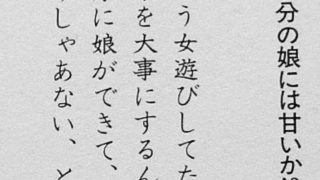 分の娘には甘いか
う女遊びしてた
を大事にするん
に娘ができて、
しゃあない、